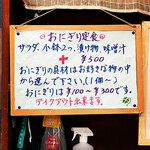 おにぎり定食
サラダ、小鉢2つ、漬け物、味噌汁
+ ¥500
おにぎりの具材はお好きな物の中
から選んで下さい。(1個〜)
おにぎりは¥100〜¥300です。
テイクアウト出来ます。